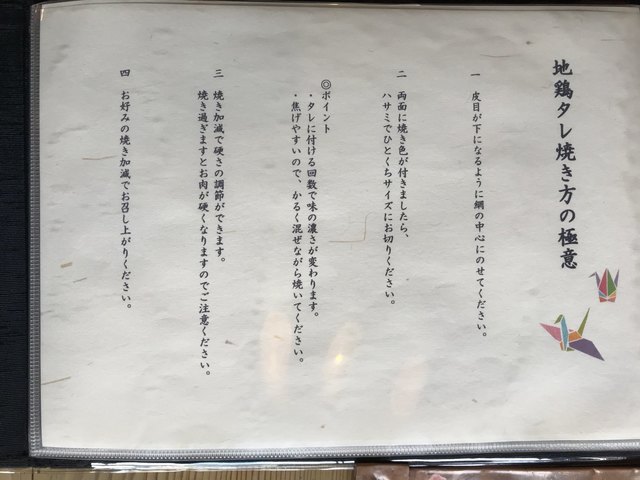 地鶏タレ焼き方の極意
一 皮目が下になるように網の中心にのせてください。
二 両面に焼き色が付きましたら、
ハサミでひとくちサイズにお切りください。
◎ポイント
・タレに付ける回数で味の濃さが変わります。
・焦げやすいので、かるく混ぜながら焼いてください。
三 焼き加減で硬さの調節ができます。
焼き過ぎますとお肉が硬くなりますのでご注意ください。
四 お好みの焼き加減でお召し上がりください。